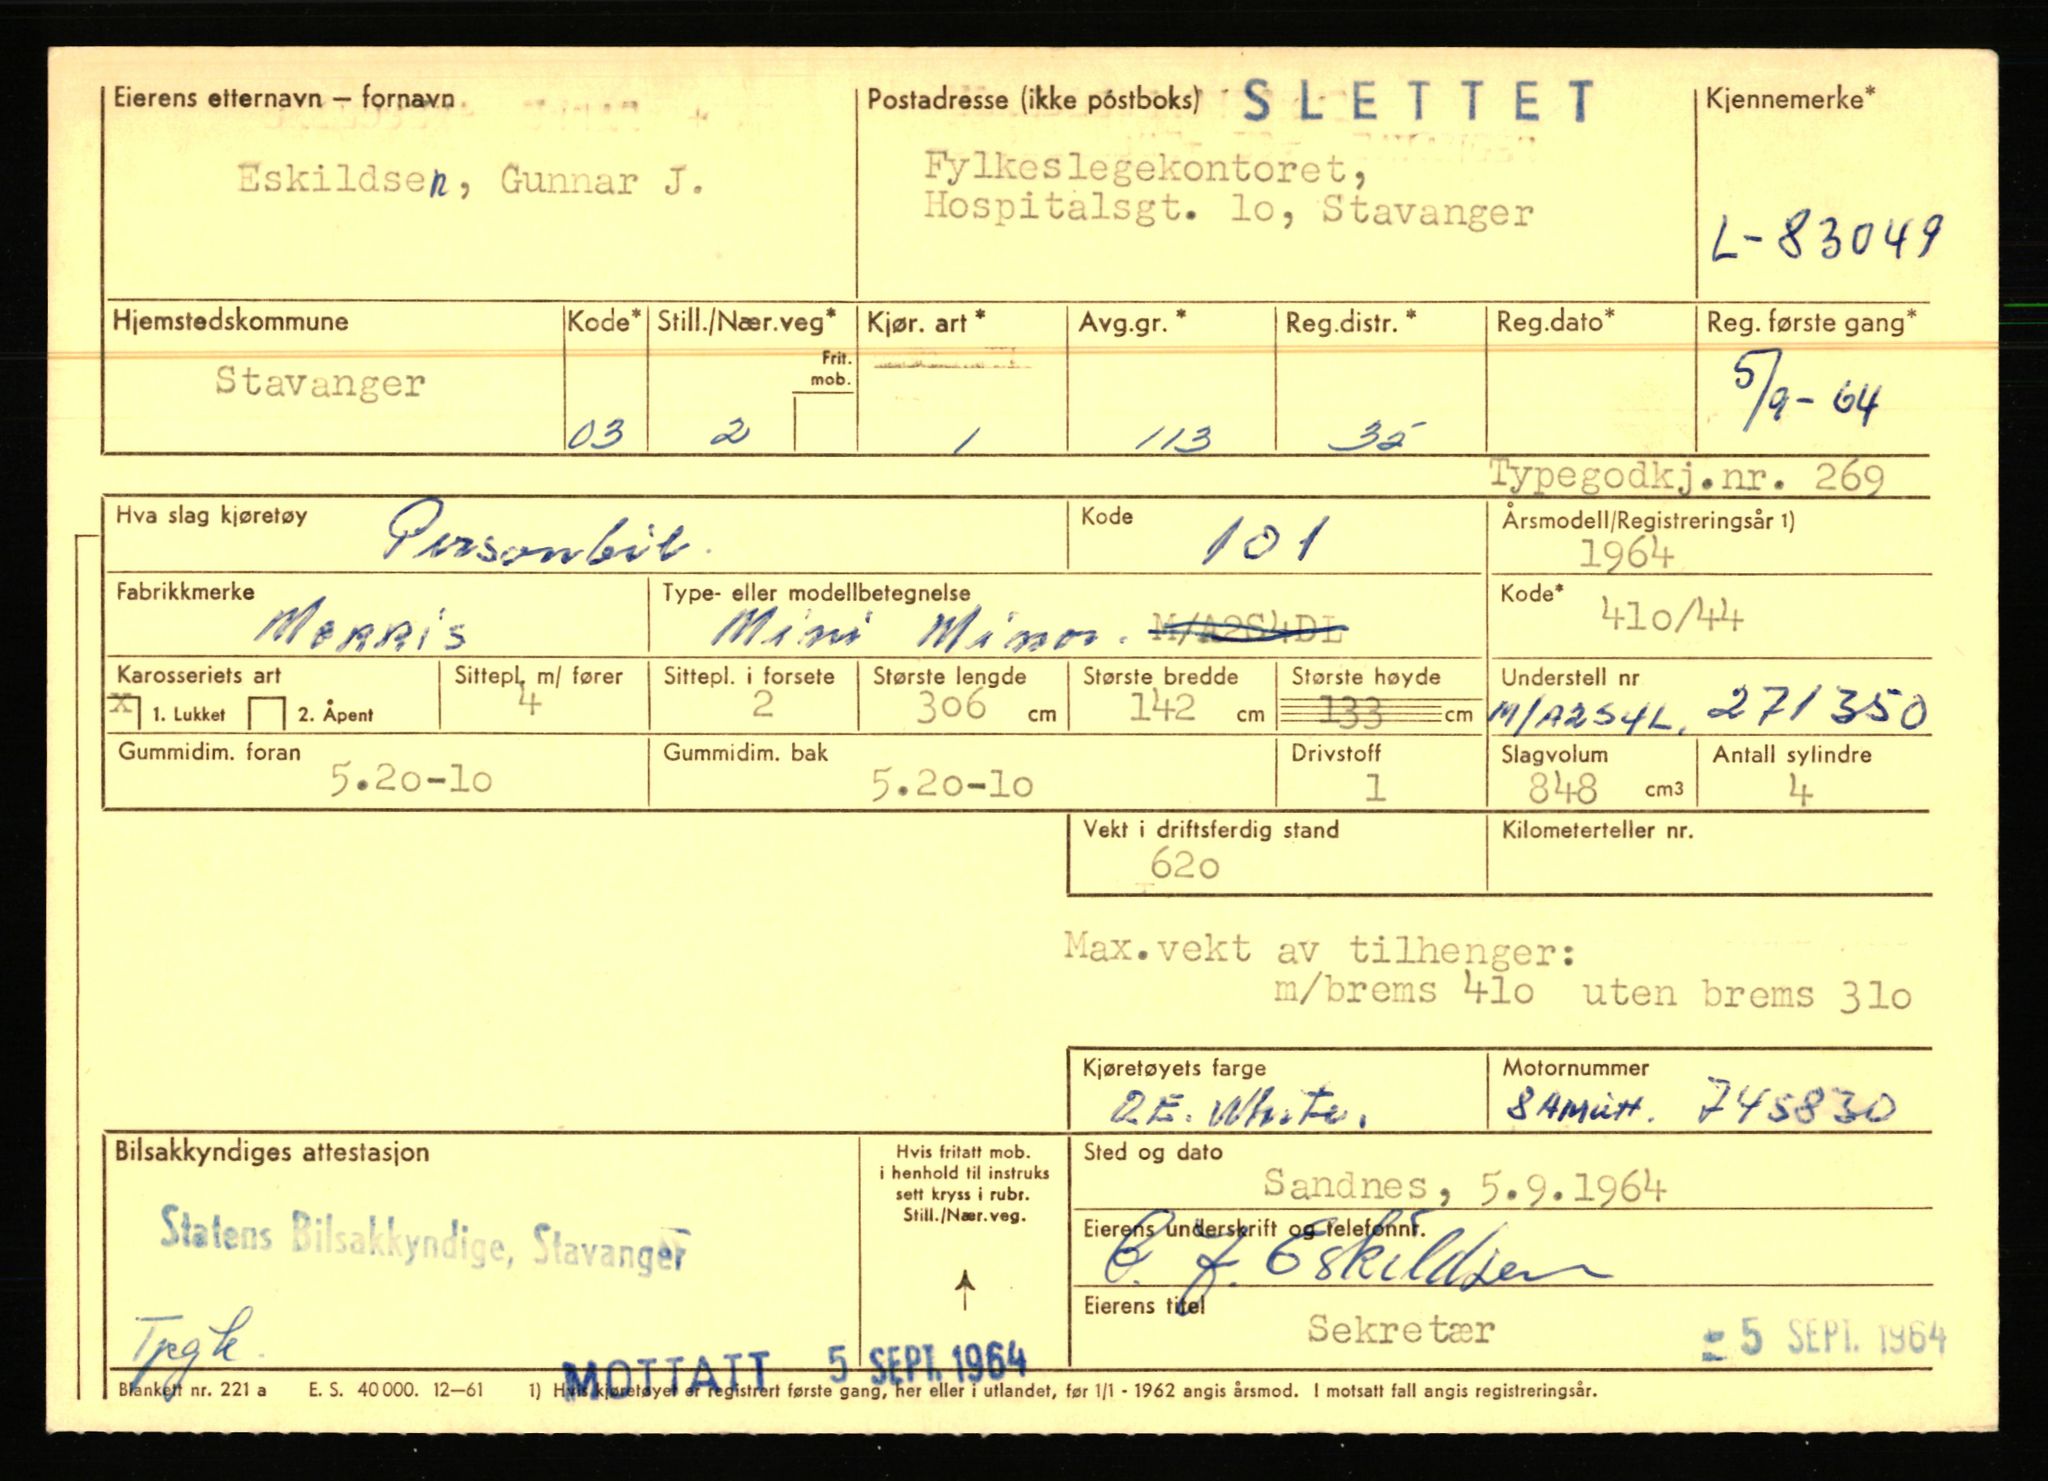 Eierens etternavn – fornavn
Eskildsen, Gunnar J.
Postadresse (ikke postboks)
SLETTET
Fylkeslegekontoret,
Hospitalsgt. 1o, Stavanger
Kjennemerke*
L-83049
Hjemstedskommune
Stavanger
Kode*
03
Still./Nær.veg*
Frit.
mob.
2
Kjør. art*
1
Avg.gr.*
113
Reg.distr.*
35
Reg.dato*
Reg. første gang*
5/9-64
Typegodkj.nr. 269
Hva slag kjøretøy
Personbil.
Kode
101
Årsmodell/Registreringsår 1)
1964
Fabrikkmerke
Morris
Type- eller modellbetegnelse
Mini Minor. M/A2S4DL
Kode*
41o/44
Karosseriets art
x 1. Lukket 2. Åpent
Sittepl. m/ fører
4
Sittepl. i forsete
2
Største lengde
3o6 cm
Største bredde
142 cm
Største høyde
133 cm
Understell nr
M/A2S4L. 271350
Gummidim. foran
5.2o-1o
Gummidim. bak
5.2o-1o
Drivstoff
1
Slagvolum
848 cm3
Antall sylindre
4
Vekt i driftsferdig stand
62o
Kilometerteller nr.
Max.vekt av tilhenger:
m/brems 41o uten brems 31o
Kjøretøyets farge
White.
Motornummer
745830
Bilsakkyndiges attestasjon
Statens Bilsakkyndige, Stavanger
Hvis fritatt mob.
i henhold til instruks
sett kryss i rubr.
Still./Nær.veg.
Sted og dato
Sandnes, 5.9.1964
Eierens underskrift og telefonnr.
J. Eskildsen
Eierens titel
Sekretær
5 SEPT. 1964
MOTTATT 5 SEPT. 1964
Blankett nr. 221 a E. S. 40 000. 12–61 1) Hvis kjøretøyet er registrert første gang, her eller i utlandet, før 1/1 - 1962 angis årsmod. I motsatt fall angis registreringsår.